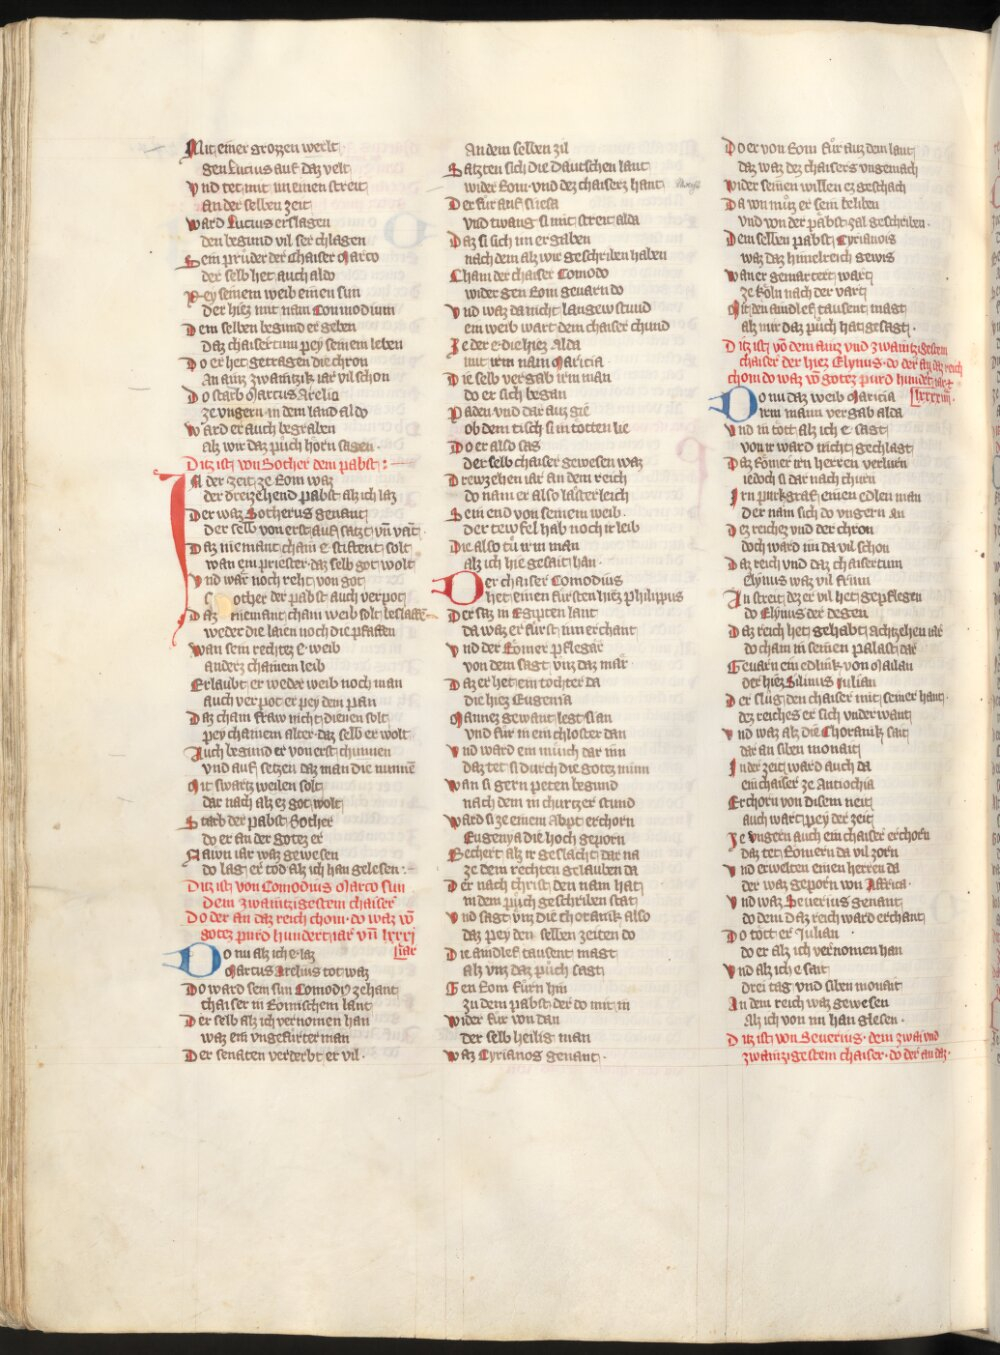 Mit einer grozzen werlt
gen Lucius auf daz velt
Vnd tet mit im einen streit
An der selben zeit
Ward Lucius erslagen
den begund vil ser chlagen
Sein prúder der chaiser Marco
der selb het auch aldo
Pey seinem weib einen sun
der hiez mit nam Commodium
Dem selben begund er geben
daz chaisertum pey seinem leben
Do er het getragen die chron
An ainz zwaintzik iar vil schon
Do starb Marcus Arelio
ze vngern in dem land aldo
Ward er auch begraben
als wir daz půch horn sagen
Ditz ist von Sother dem pabst
In der zeit ze Rom waz
der dreizehend pabst als ich laz
Der waz Sotherus genant
der selb von erst auf satzt vñ vant
Daz niemant cham e stiftent solt
wan ein priester daz selb got wolt
Vnd wär noch reht von got
Sother der pabst auch verpot
Daz niemant cham weib solt beslaffē
weder die laien noch die pfaffen
Wan sein rechtez e weib
anderz chainem leib
Erlaubt er weder weib noch man
auch verpot er pey dem pan
Daz cham fraw nicht dienen solt
pey chainem alter daz selb er wolt
Auch begund er von erst chunnen
vnd auf setzen daz man die nunnē
Mit swartz weilen solt
dar nach als ez got wolt
Starb der pabst Sother
do er an der gotez er
Nawn iar waz gewesen
do lag er tod als ich han gelesen
Ditz ist von Comodius Marco sun
dem zwaintzigestem chaiser
Do der an daz reich chom do waz vō
gotez purd hundert iar vñ lxxxj
iar
Do nu als ich e laz
Marcus Arelius tot waz
Do ward sein sun Comody zehant
chaiser in Romischem lant
Der selb als ich vernomen han
waz ein vngefürter man
Der senaten verderbt er vil
An dem selben zil
Satzten sich die Dautschen laut
wider Rom vnd dez chaiserz hant
Der für auf si iesa
vnd twang si mit streit alda
Daz si sich im ergaben
nach dem als wir geschriben haben
Cham der chaiser Comodo
wider gen Rom gevarn do
Vnd waz da nicht lang ew stund
ein weib wart dem chaiser chund
Ie der e die hiez alda
mit irm nam Maricia
Die selb vergab irm man
do er sich began
Paden vnd dar auz gie
ob dem tisch si in totten lie
Do er also sas
der selb chaiser gewesen waz
Drewzehen iar an dem reich
do nam er also lasterleich
Sein end von seinem weib
der tewfel hab noch ir leib
Die also tů irm man
als ich hie gesait han
Der chaiser Comodius
het einen fürsten hiez philippus
Der saz in Egipten lant
da waz er fürst im erchant
Vnd der Römer pflegär
von dem sagt vnz daz mär
Daz er het ein tochter da
die hiez Eugenia
Mannez gewant legt si an
vnd für in ein chloster dan
Vnd ward ein münch dar inn
daz tet si durch die gotez minn
Wan si gern peten begund
nach dem in churtzer stund
Ward si ze einem abpt erchorn
Eugenya die hoch geporn
Bechert als ir geslächt dar na
ze dem rechten gelauben da
Der nach christ den nam hat
in dem půch geschriben stat
Vnd sagt vnz die choranik also
daz pey den selben zeiten do
Die aindlef tausent magt
als vnz daz půch sagt
Gen Rom fürn hin
zu dem pabst der do mit in
Wider für von dan
der selb heilig man
Waz Cyrianos genant
Do er von Rom für auz dem lant
daz waz dez chaisers vngemach
Wider seinen willen ez geschach
Da von můz er sein beliben
vnd von der päbst zal geschriben
Dem selben pabst Cyrianois
waz daz himelreich gewis
Wan er gemartert wart
ze köln nach der vart
Mit den aindlef tausent magt
als mir daz půch hat gesagt
Ditz ist vō dem ainz vnd zwaintzigestem
chaiser der hiez Elynus do der an daz reich
chom do waz vō gotez purd hundert iar
lxxxiiij
Do nu daz weib Maricia
irm mann vergab alda
Vnd in tott als ich e sagt
von ir ward nicht gechlagt
Daz Römer irn herren verlurn
iedoch si dar nach churn
Irn purkgraf einen edlen man
der nam sich do vngern an
Dez reichez vnd der chron
doch ward im da vil schon
Daz reich vnd daz chaisertum
Elynus waz vil frum
An streit dez er vil het gepflegen
do Elynus der degen
Daz reich het gehabt achtzehen iar
do cham in seinen palast dar
Gevarn ein edlink von Mailan
der hiez Silinus iulian
Der slüg den chaiser mit seiner hant
dez reiches er sich vnder want
Vnd waz als die Choranik sait
dar an siben monait
In der zeit ward auch da
ein chaiser ze Antiochia
Erchorn von disem neit
auch wart pey der zeit
Ze vngern auch ein chaiser erchorn
daz tet Römern da vil zorn
Vnd erwelten einen herren da
der waz geporn von Affrica
Vnd waz Seuerius genant
do dem daz reich ward erchant
Do tött er iulian
do er als ich vernomen han
Vnd als ich e sait
drei tag vnd siben monait
In dem reich waz gewesen
als ich von im han glesen
Ditz ist von Seuerius dem zwai vnd
zwaintzigestem chaiser do der an daz